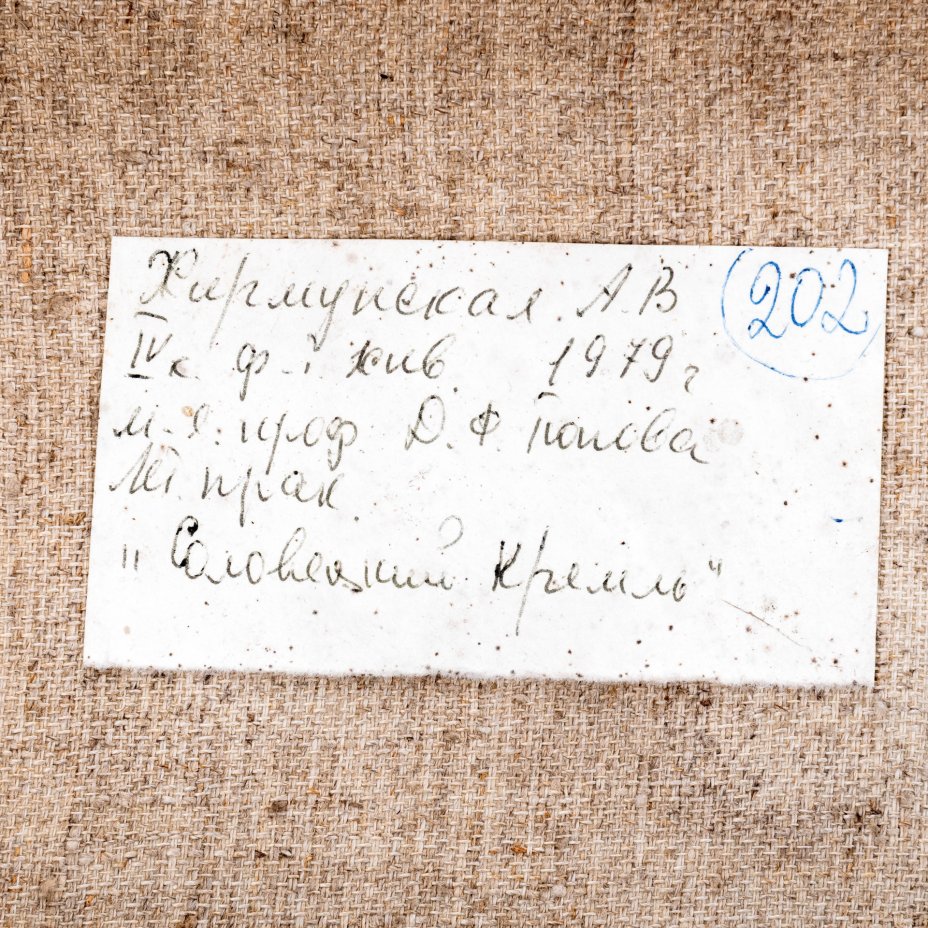 Жирмунская. А.В
202
IV к. ф-т жив. 1979 г
м-я. проф. Д.Ф. Попова
прак.
"Соловецкий Кремль"